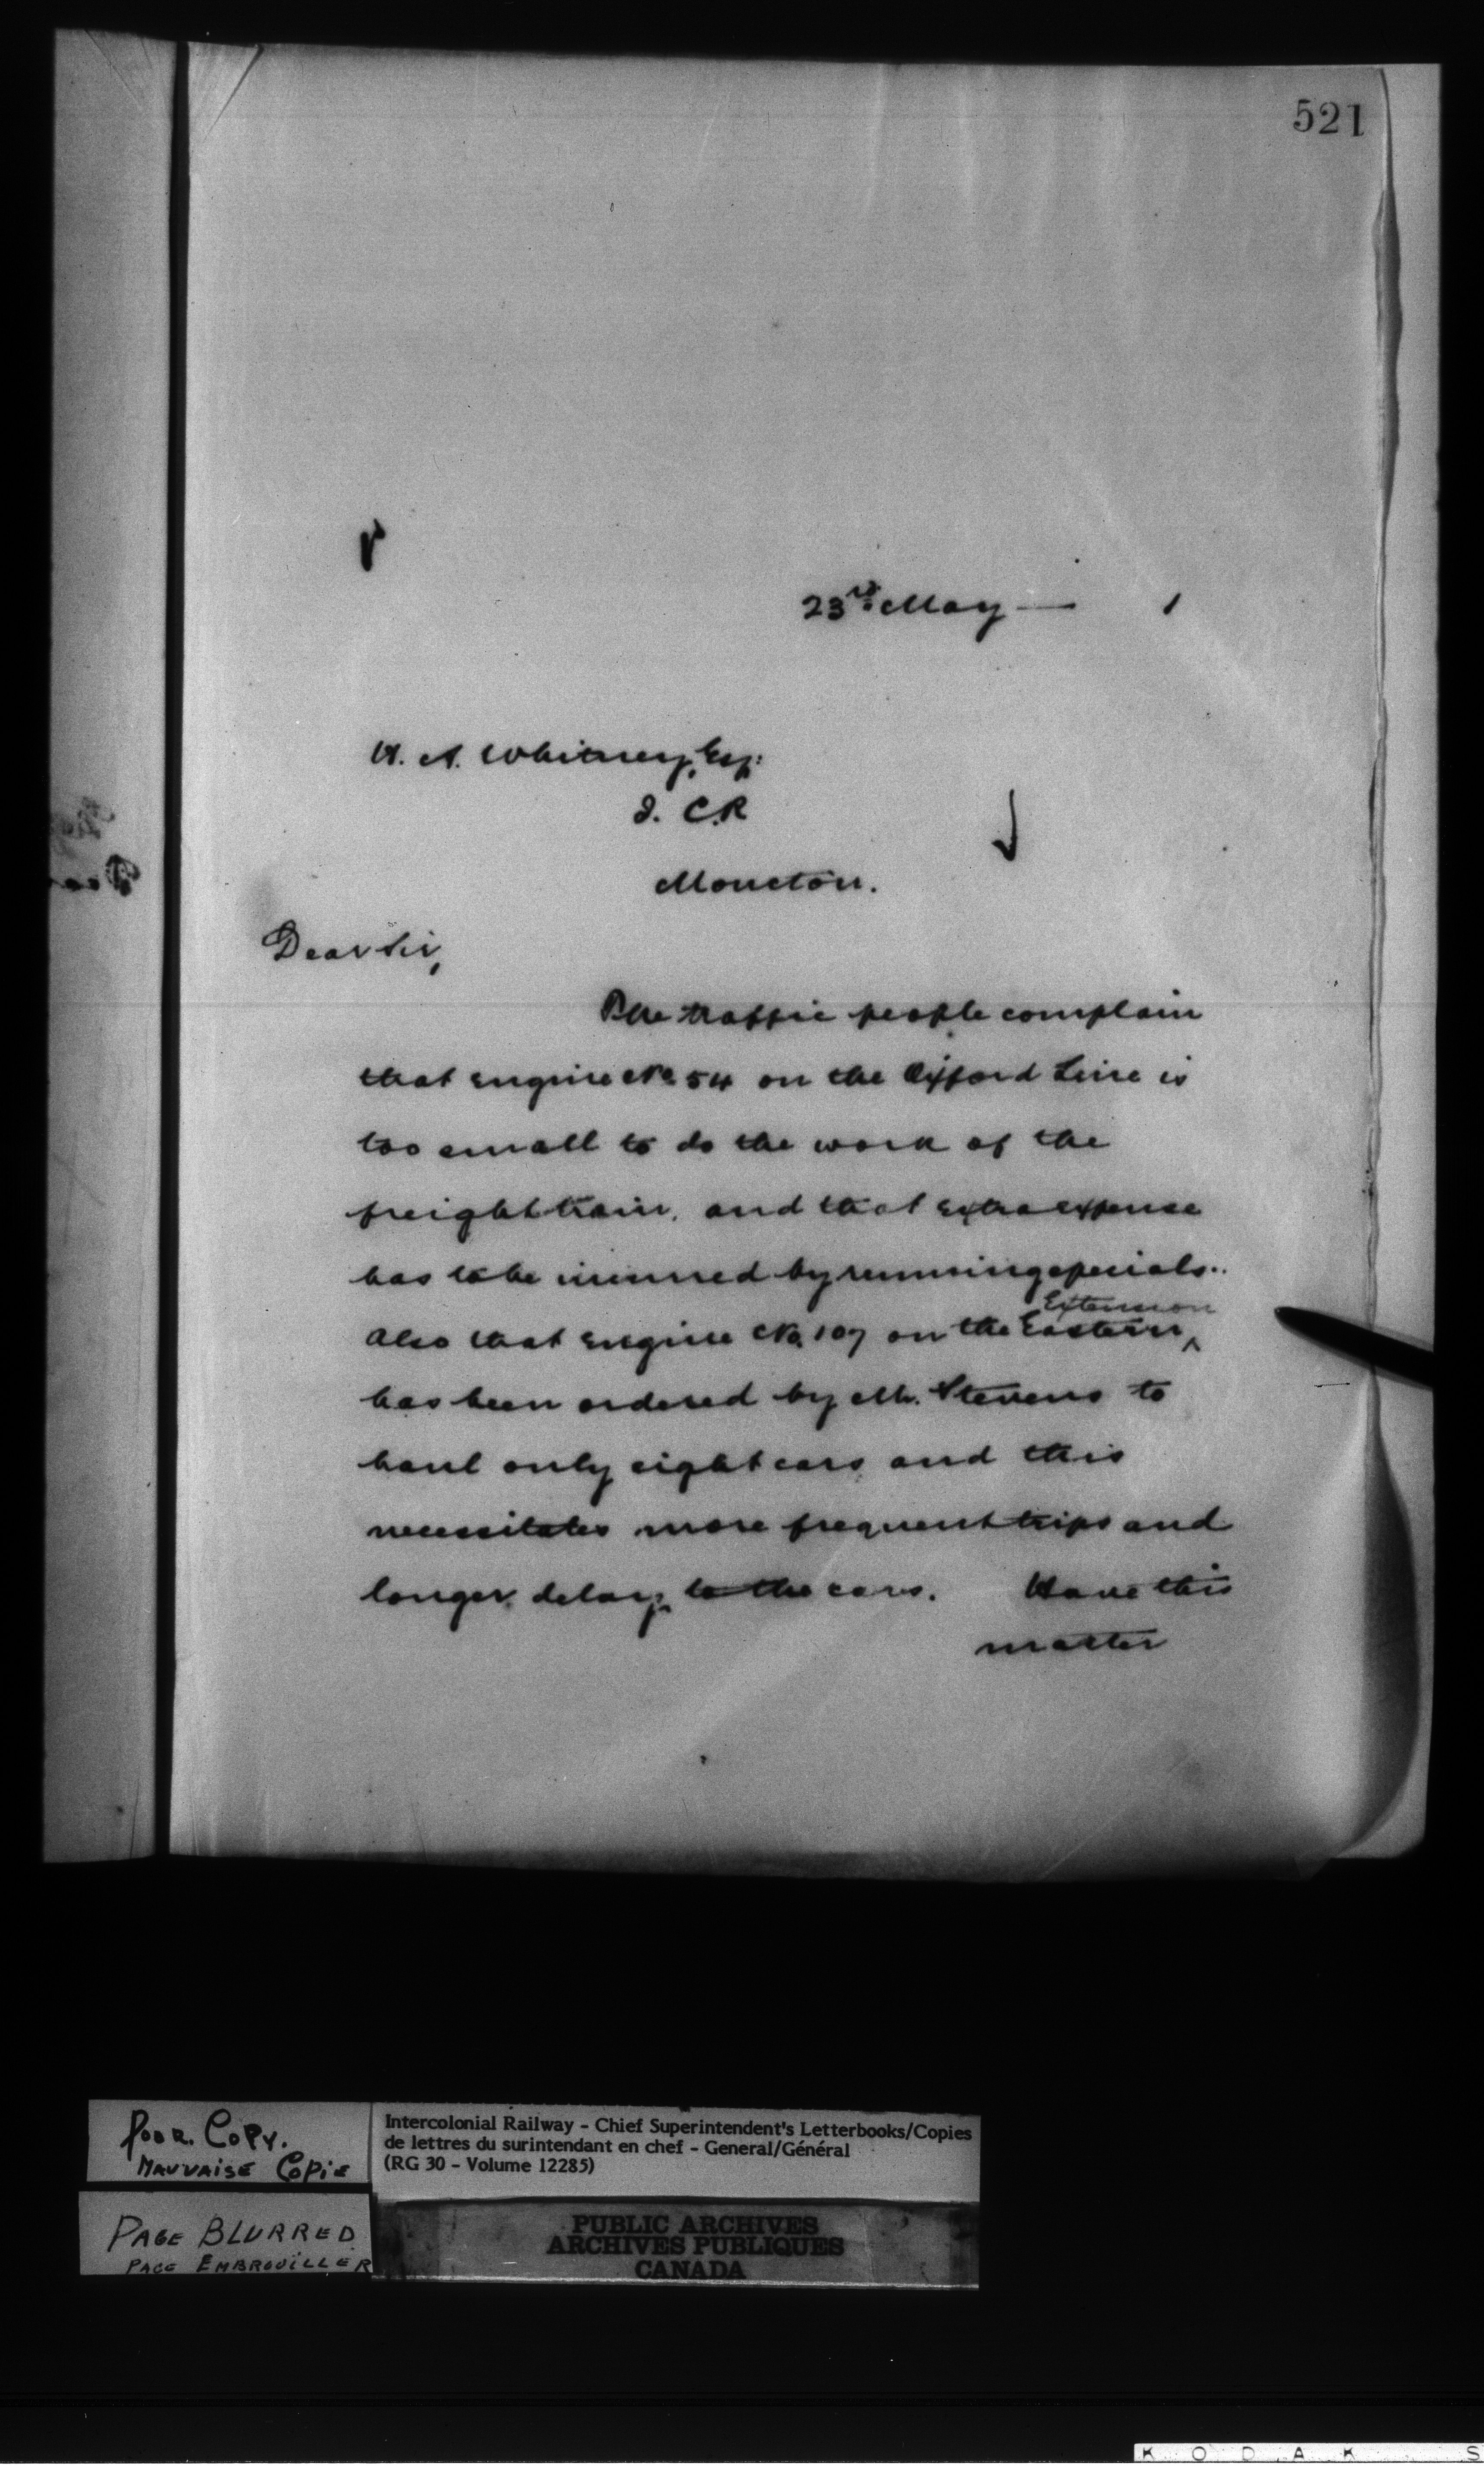 521
23rd May — 1
H. A. Whitney, Esq:
I. C. R
Moncton.
Dear Sir,
The traffic people complain
that engine No 54 on the Oxford Line is
too small to do the work of the
freight train, and that extra expense
has to be incurred by running specials.
Extension
Also that Engine No 107 on the Eastern ^
has been ordered by Mr. Stevens to
haul only eight cars and this
necessitates more frequent trips and
longer delay to the cars. Have this
matter
POOR. COPY.
MAUVAISE COPIE
Intercolonial Railway - Chief Superintendent's Letterbooks/Copies
de lettres du surintendant en chef - General/Général
(RG 30 - Volume 12285)
PAGE BLURRED
PAGE EMBROUILLER
PUBLIC ARCHIVES
ARCHIVES PUBLIQUES
CANADA
KODAK S